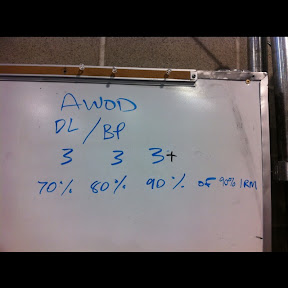 AWOD
DL/BP
3 3 3+
70% 80% 90% of 90% 1RM